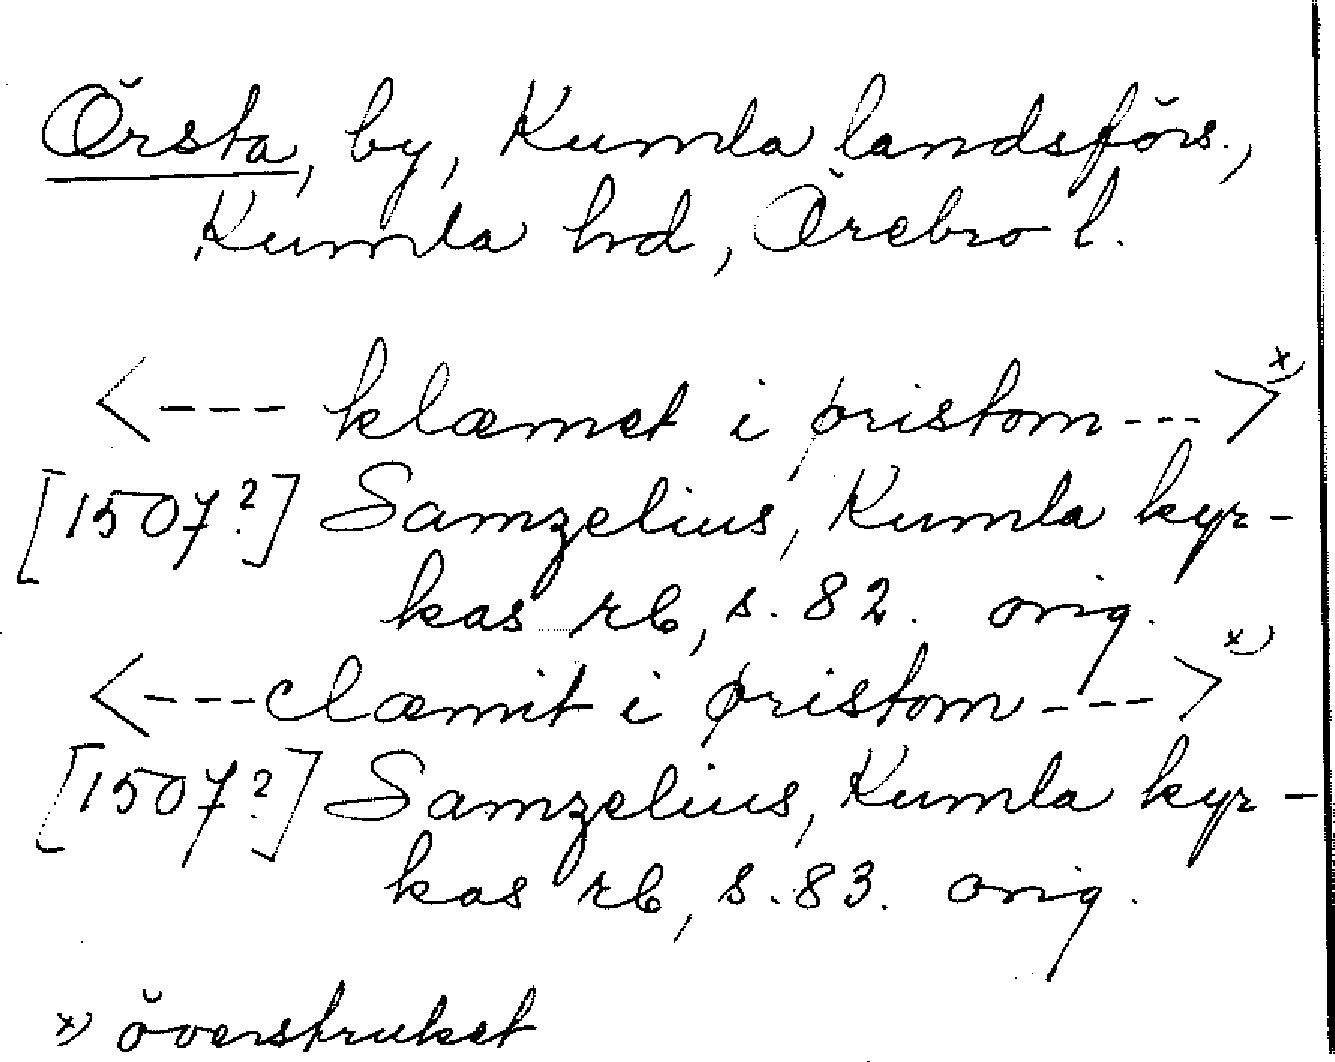 Örsta, by, Kumla landsförs.,
Kumla hd, Örebro l.
<--- klæmet i øristom --->x)
[1507?] Samzelius, Kumla kyr-
kas rb, s. 82. orig.
<---clæmit i øristom --->x)
[1507?] Samzelius, Kumla kyr-
kas rb, s. 83. orig.
x) överstruket